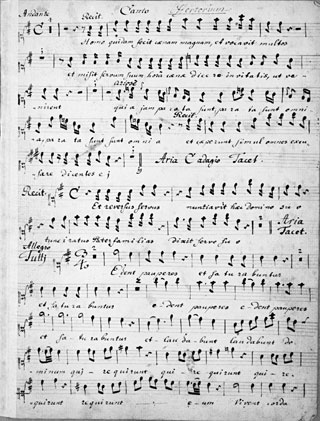 Canto
Andante Recit
Homo quidam fecit cænam magnam, et vocavit multos
et misit servum suum hora cænæ dicere invitatis, ut ve=
nirent quia jam parata sunt parata sunt omni=
Recit
a, parata sunt sunt omnia et ceperunt simul omnes excu=
sare dicentes
Aria Tacet.
Recit.
Et reversus servus nuntiavit hæc domino suo
tunc iratus Paterfamilias dixit servo suo Aria Tacet.
Allegro
Tutti
Edent pauperes et saturabuntur
et saturabuntur edent pauperes edent pauperes
et saturabuntur et laudabunt laudabunt do=
minum qui requirunt qui requirunt qui re=
quirunt requirunt eum Vivent corda